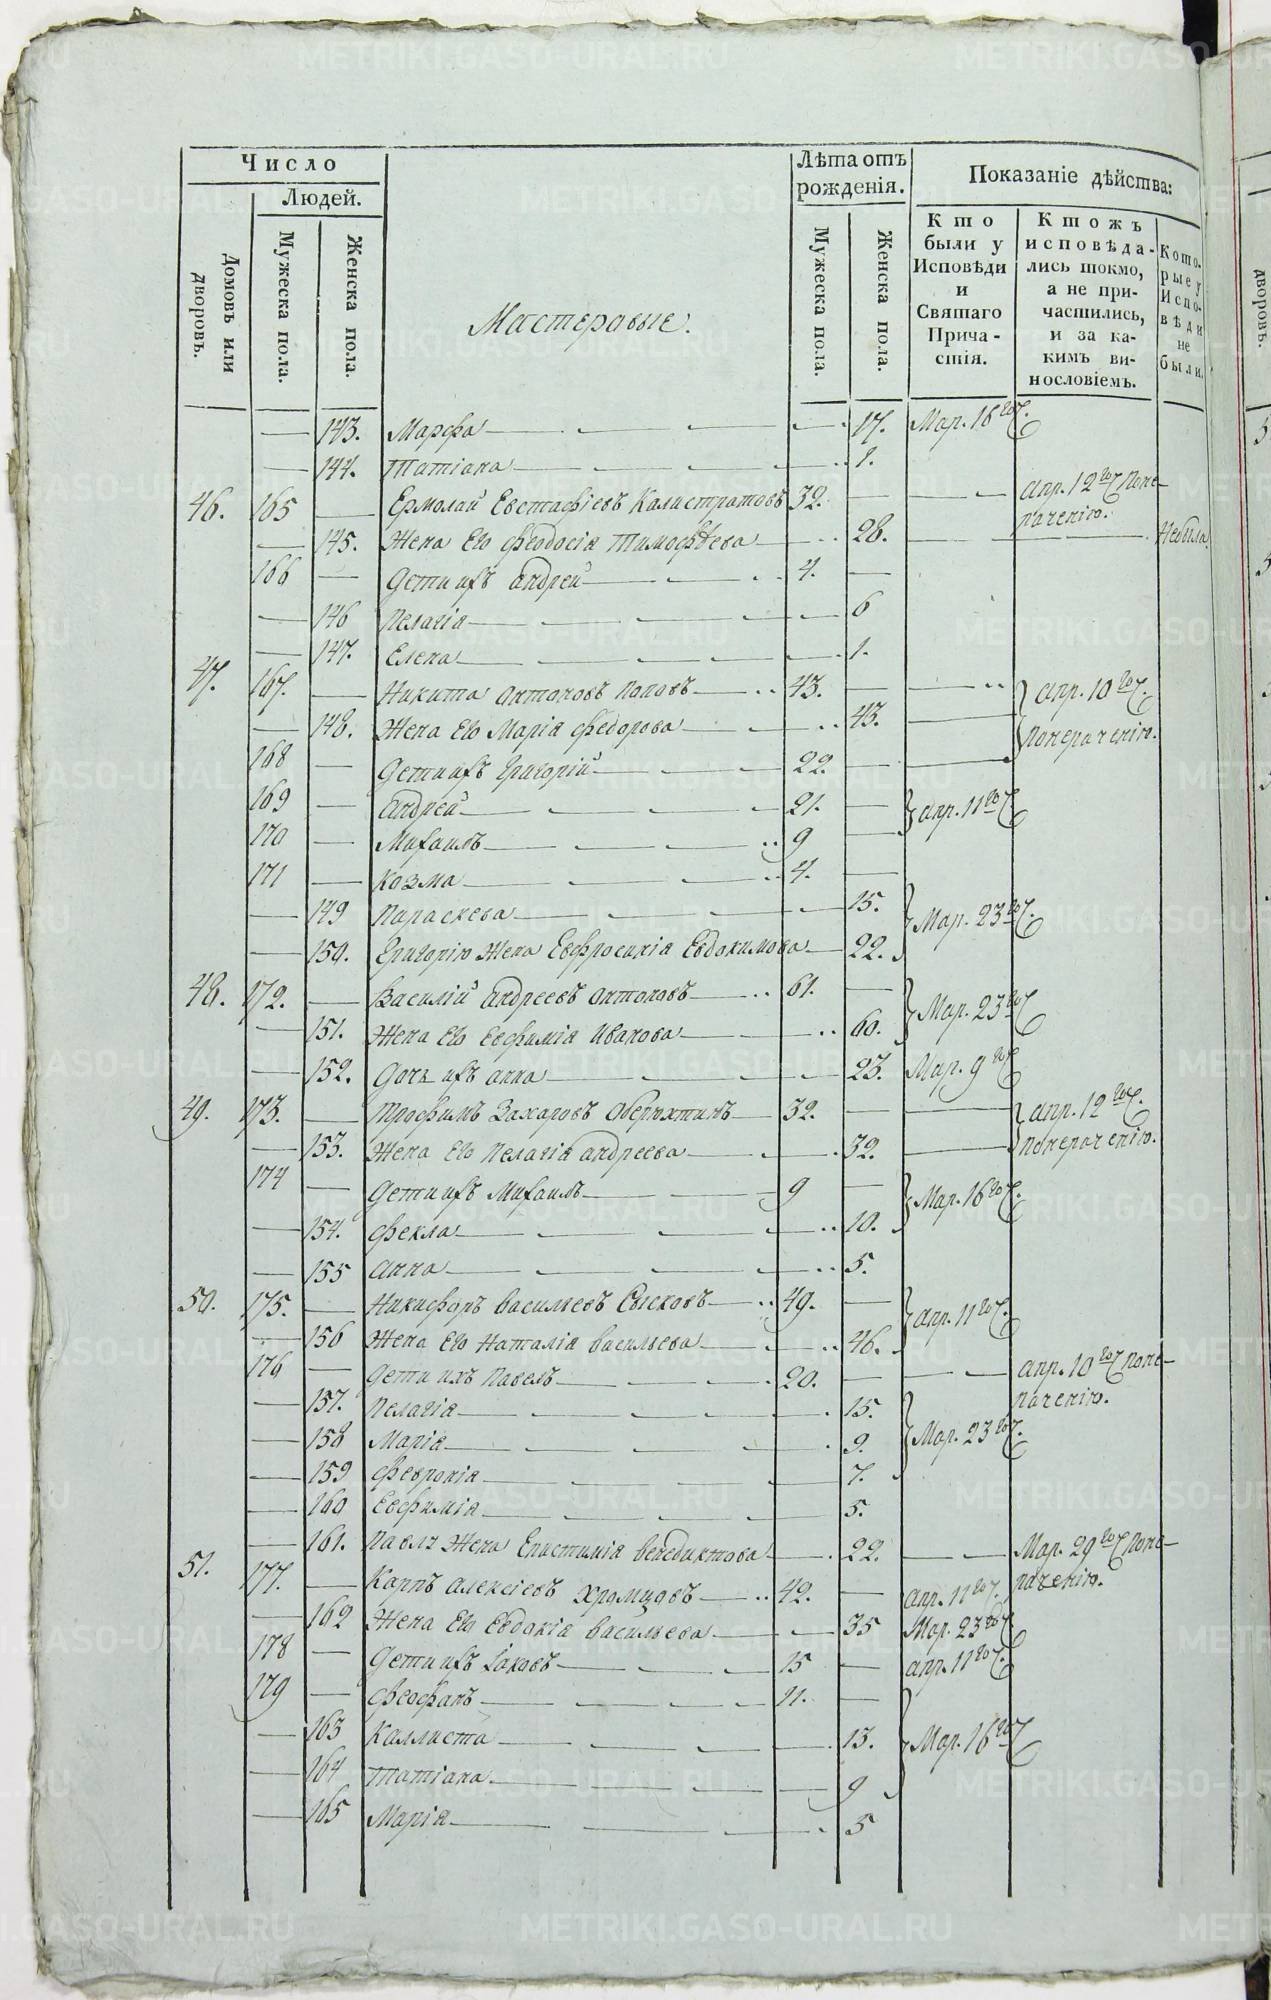 Число
Людей.
Домовъ или дворовъ.
Мужеска пола.
Женска пола.
Мастеровые.
Лѣта отъ рожденія.
Мужеска пола.
Женска пола.
Показаніе дѣйства:
Кто были у Исповѣди и Святаго Причастія.
Ктожъ исповѣдались токмо, а не причастились, и за какимъ винословіемъ.
Которые у Исповѣди не были.
143. Марфа 17. Мар. 16го
144. Татіана 1.
46. 165 Ермолай Евстафіевъ Калистратовъ 32. Апр. 12го Поне-
рачению.
145. Жена Его Феодосія Тимофѣева 28. Небыла
166 Дети ихъ Андрей 4.
146 Пелагія 6
147. Елена 1.
47. 167. Никита Антоновъ Поповъ 43. Апр. 10го
148. Жена Его Марія Федорова 43. Понерачению.
168 Дети ихъ Григорій 22.
169 Андрей 21. Апр. 11го
170 Михаилъ 9
171 Козма 4.
149 Параскева 15. Мар. 23го
150. Григорію Жена Евфросинія Евдокимова 22.
48. 172. Василій Андреевъ Антоновъ 61. Мар. 23го
151. Жена Его Евфимія Иванова 60.
152. Дочь ихъ Анна 23. Мар. 9го
49. 173. Трофимъ Захаровъ Оберюхтинъ 32. Апр. 12го
153. Жена Его Пелагія Андреева 32. Понерачению.
174 Дети ихъ Михаилъ 9 Мар. 16го
154. Фекла 10.
155 Анна 5.
50. 175. Никифоръ Васильевъ Сысковъ 49. Апр. 11го
156 Жена Его Наталія Васильева 46.
176 Дети ихъ Павелъ 20. Апр. 10го Поне-
рачению.
157. Пелагія 15. Мар. 23го
158 Марія 9.
159 Феврония 7.
160 Евфимія 5.
161. Павлу Жена Епистимія Венедиктова 22. Мар. 29го Поне-
рачению.
51. 177. Карпъ Алексіевъ Хромцовъ 42. Апр. 11го
162 Жена Его Евдокія Васильева 35 Мар. 23го
178 Дети ихъ Іаковъ 15 Апр. 11го
179 Феофанъ 11.
163 Каллиста 13. Мар. 16го
164 Татіана 9
165 Марія 5
METRIKI.GASO-URAL.RU